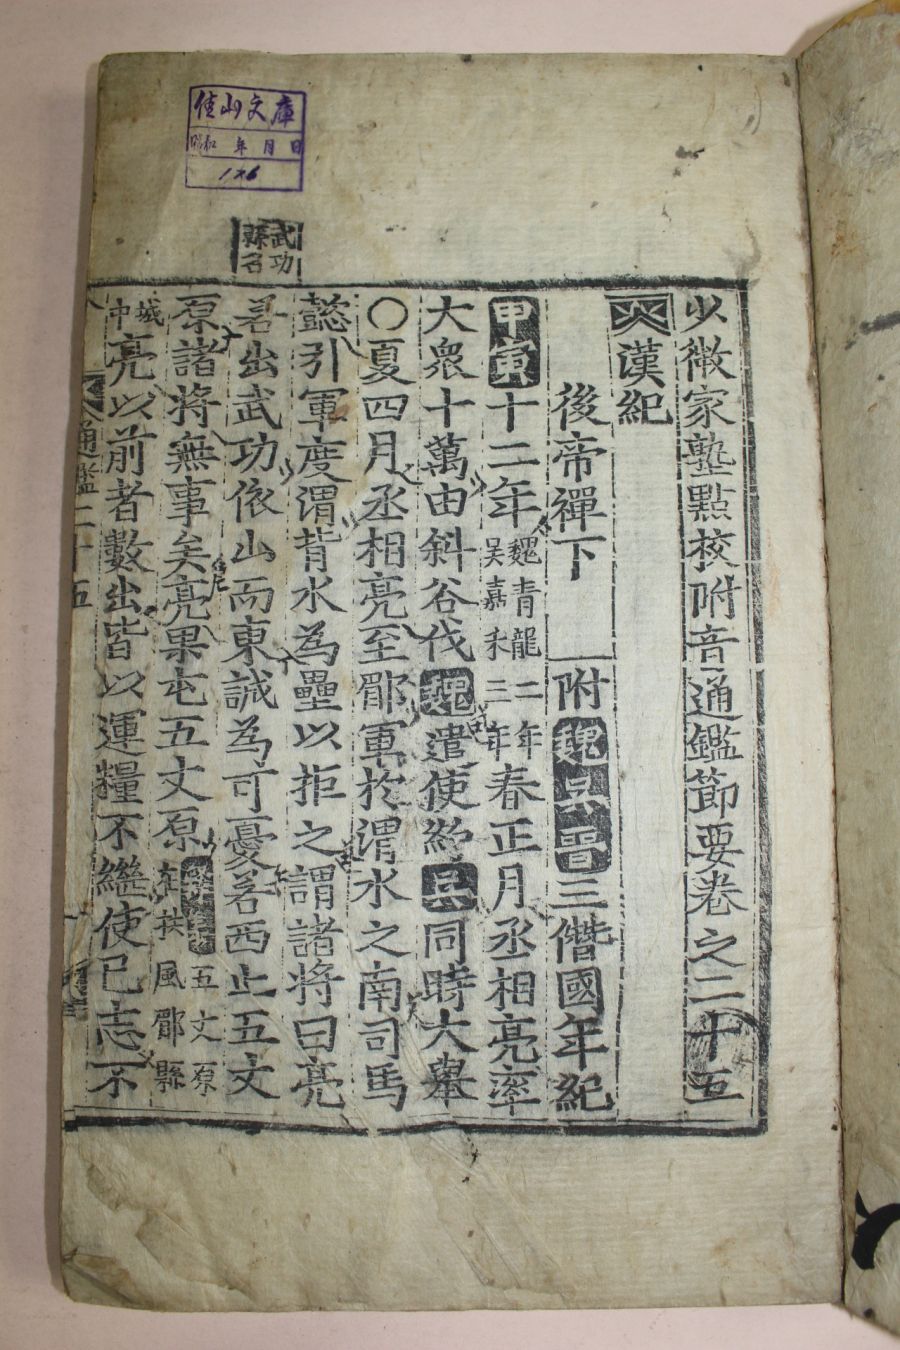 佳山文庫
昭和 年 月 日
126
武功
縣名
少微家塾點校附音通鑑節要卷之二十五
漢紀
後帝禪下 附魏吳晋三僭國年紀
甲寅十二年魏青龍二年吳嘉禾三年春正月丞相亮率
大衆十萬由斜谷伐魏遣使約吳同時大舉
〇夏四月丞相亮至郿軍於渭水之南司馬
懿引軍度渭背水為壘以拒之謂諸將曰亮
若出武功依山而東誠為可憂若西止五丈
原諸將無事矣亮果屯五丈原五丈原在扶風郿縣
城中亮以前者數出皆以運糧不繼使己志不
通鑑二十五